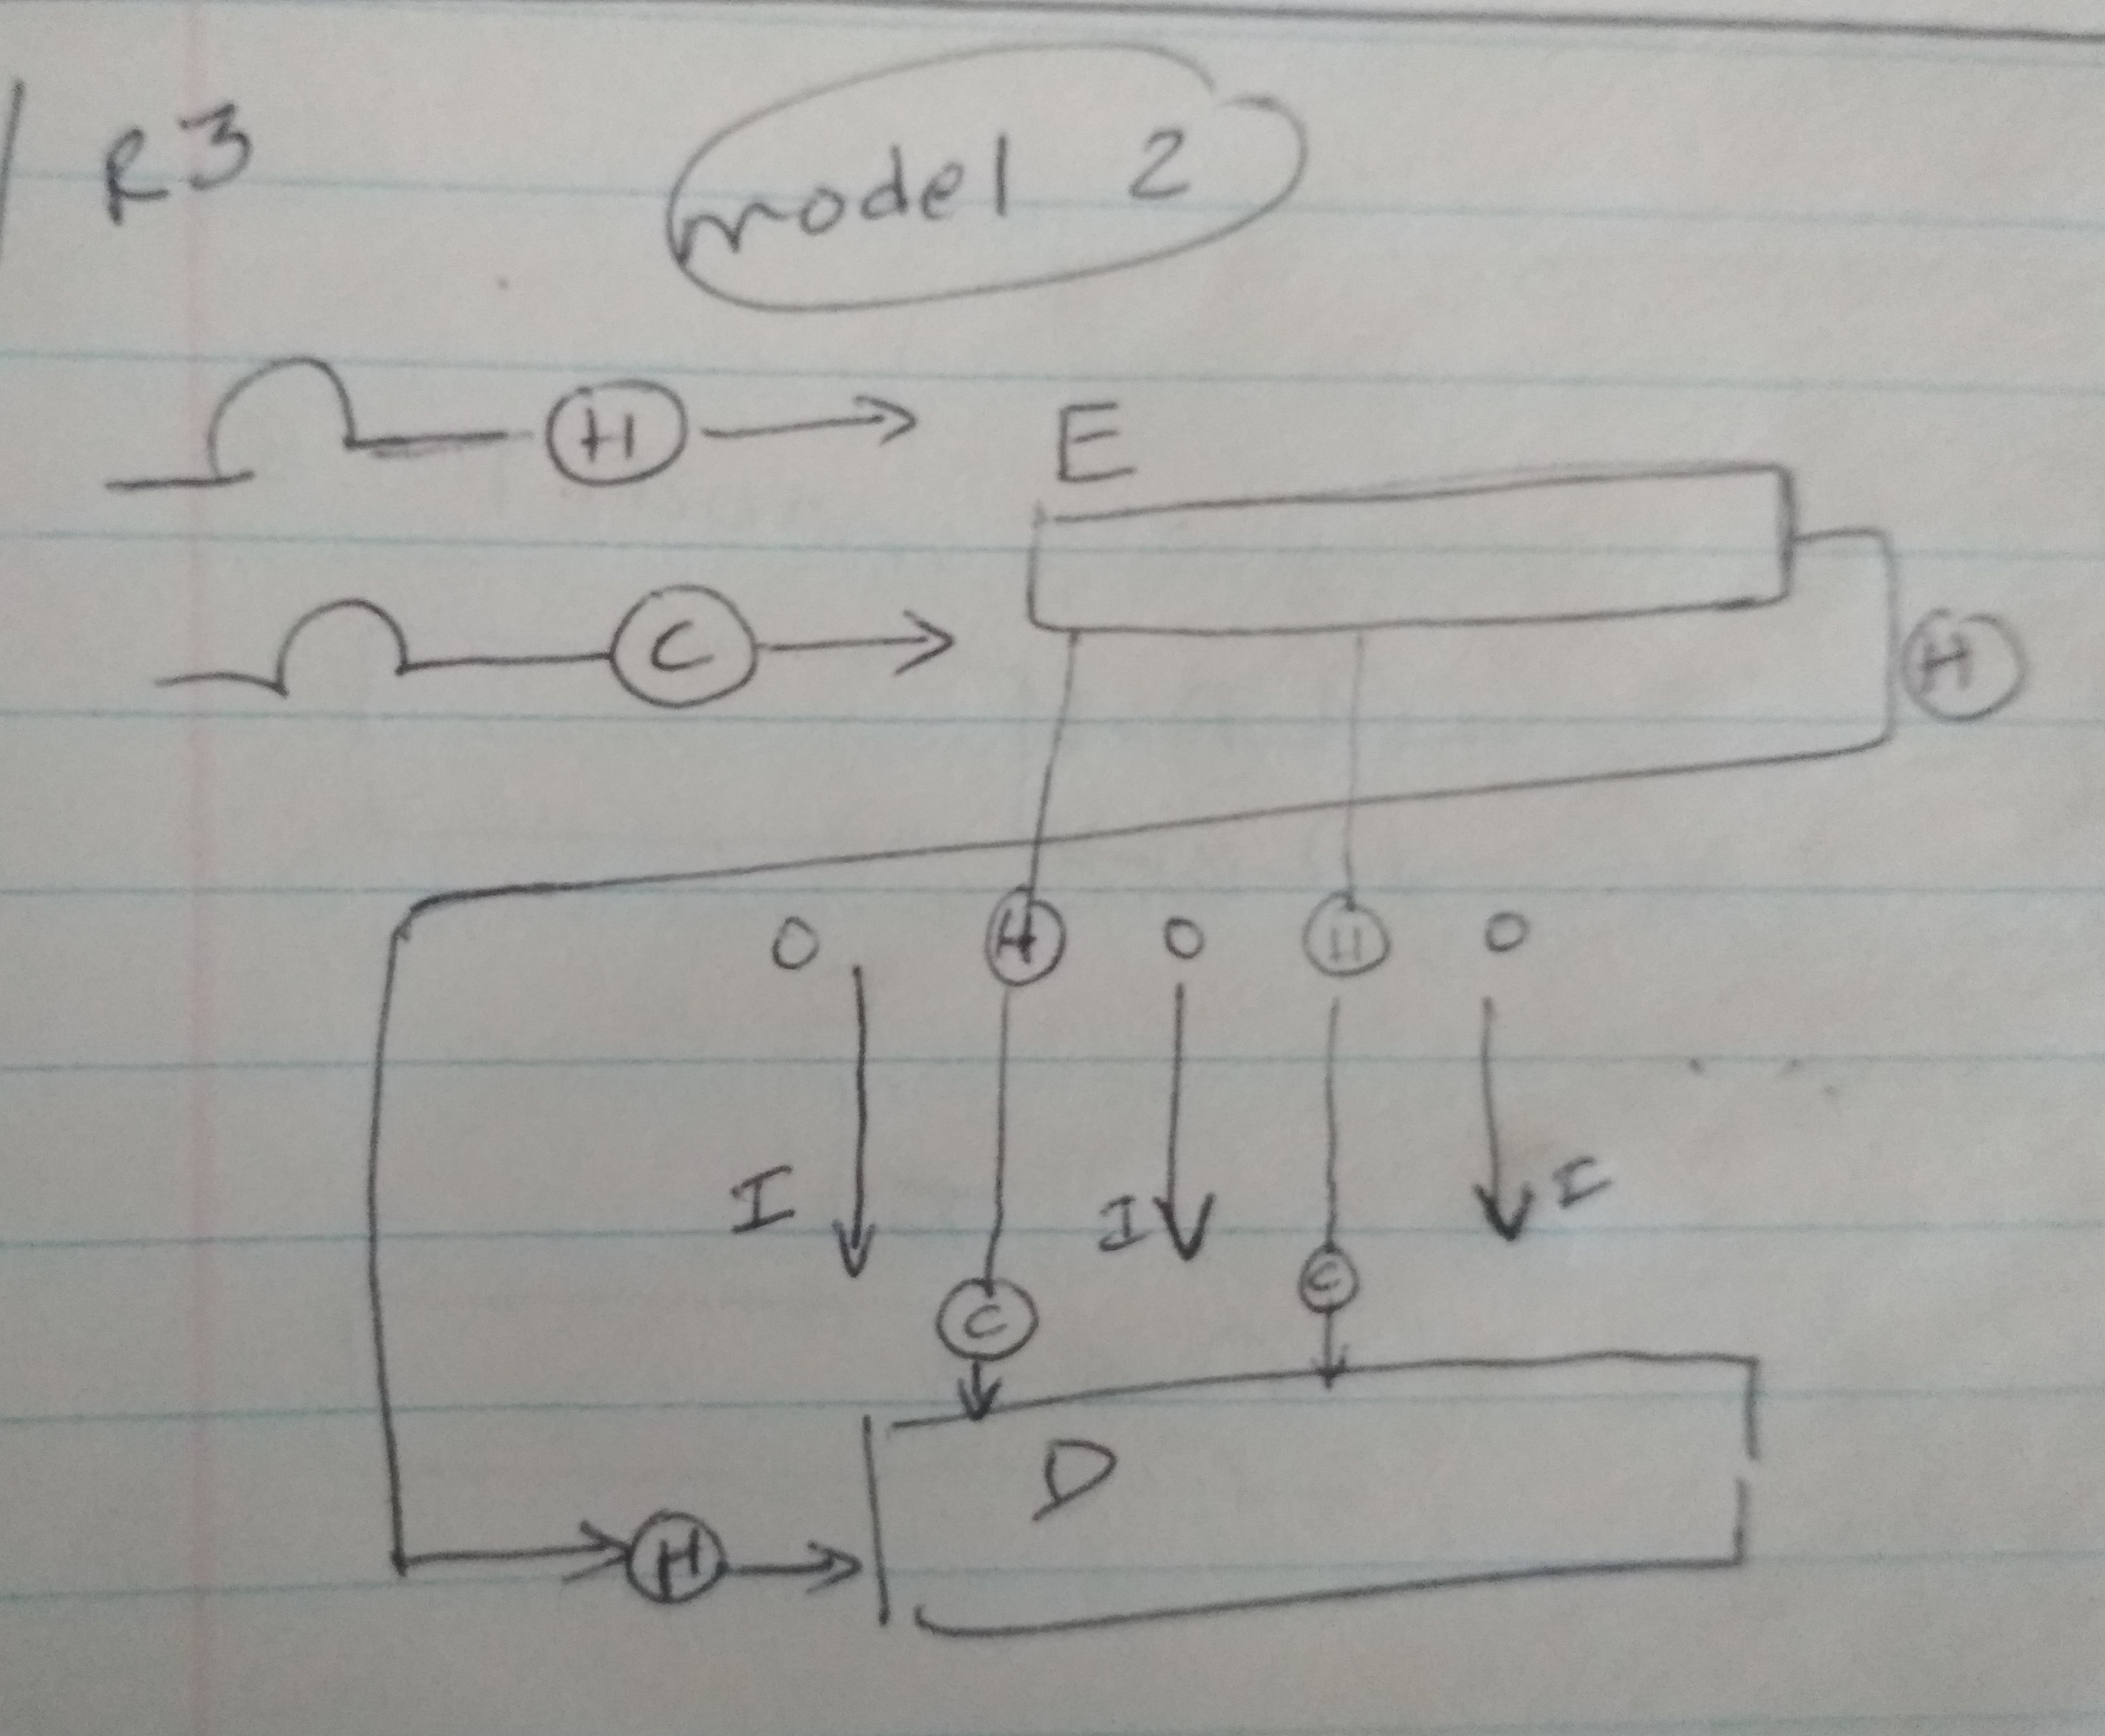 R3
model 2
H
E
C
H
O H O H O
I I I
C C
D
H